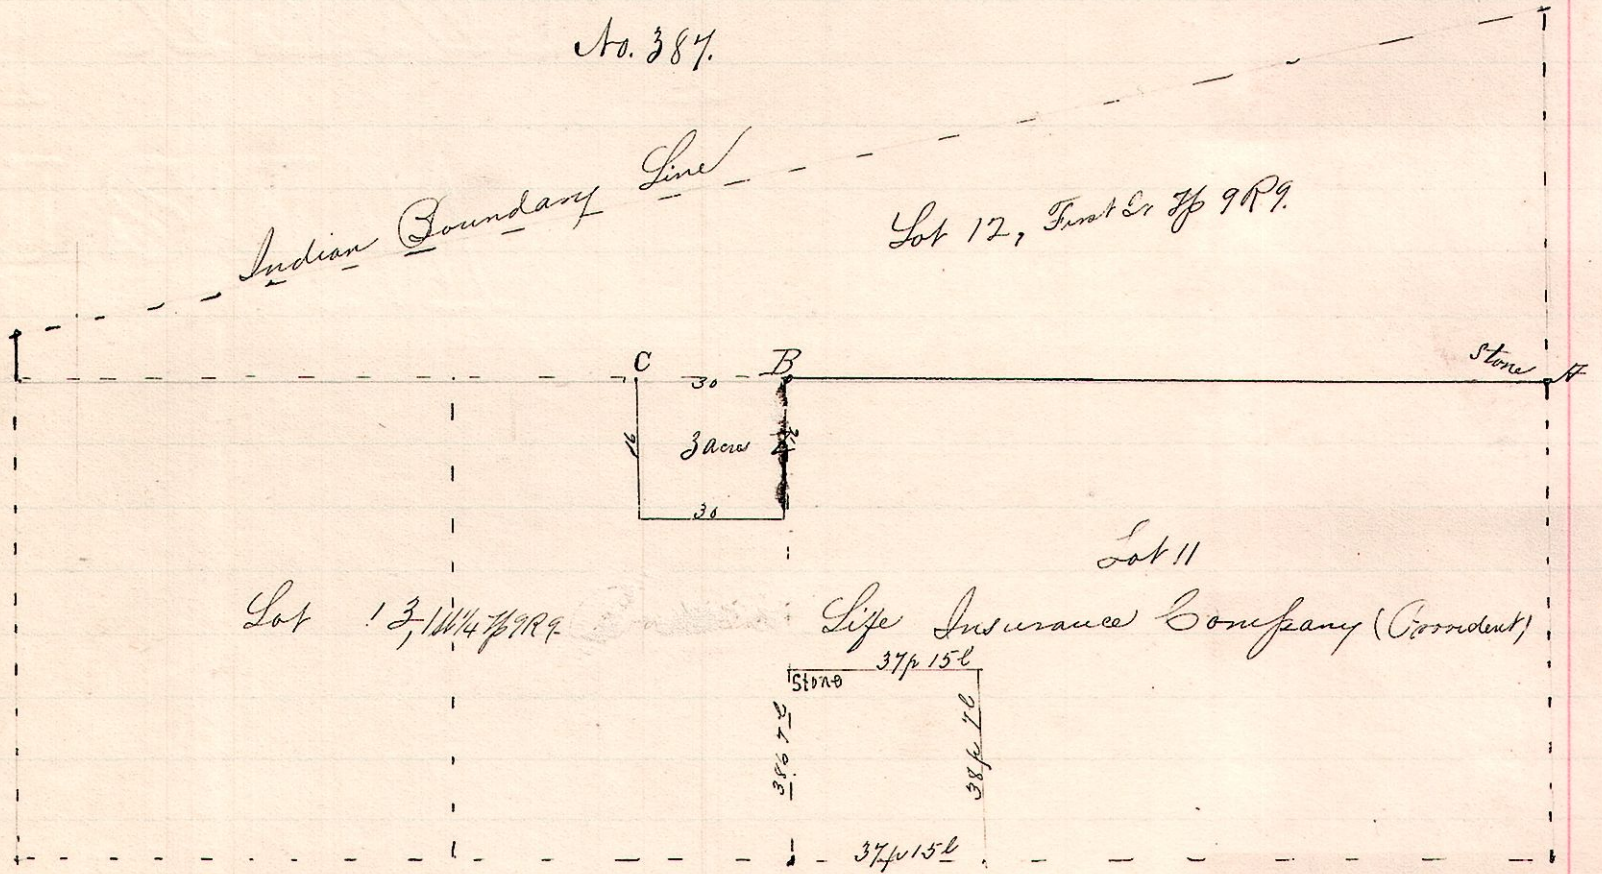 No. 387.
Indian Boundary Line
Lot 12, First Qr Tp 9 R 9.
Stone A
C
B
30
16
3 acres
30
Lot 11
Lot 13, 1st 1/4 Tp 9 R 9
Life Insurance Company (Provident)
37p 15l
Stone
38p 7l
38p 7l
37p 15l